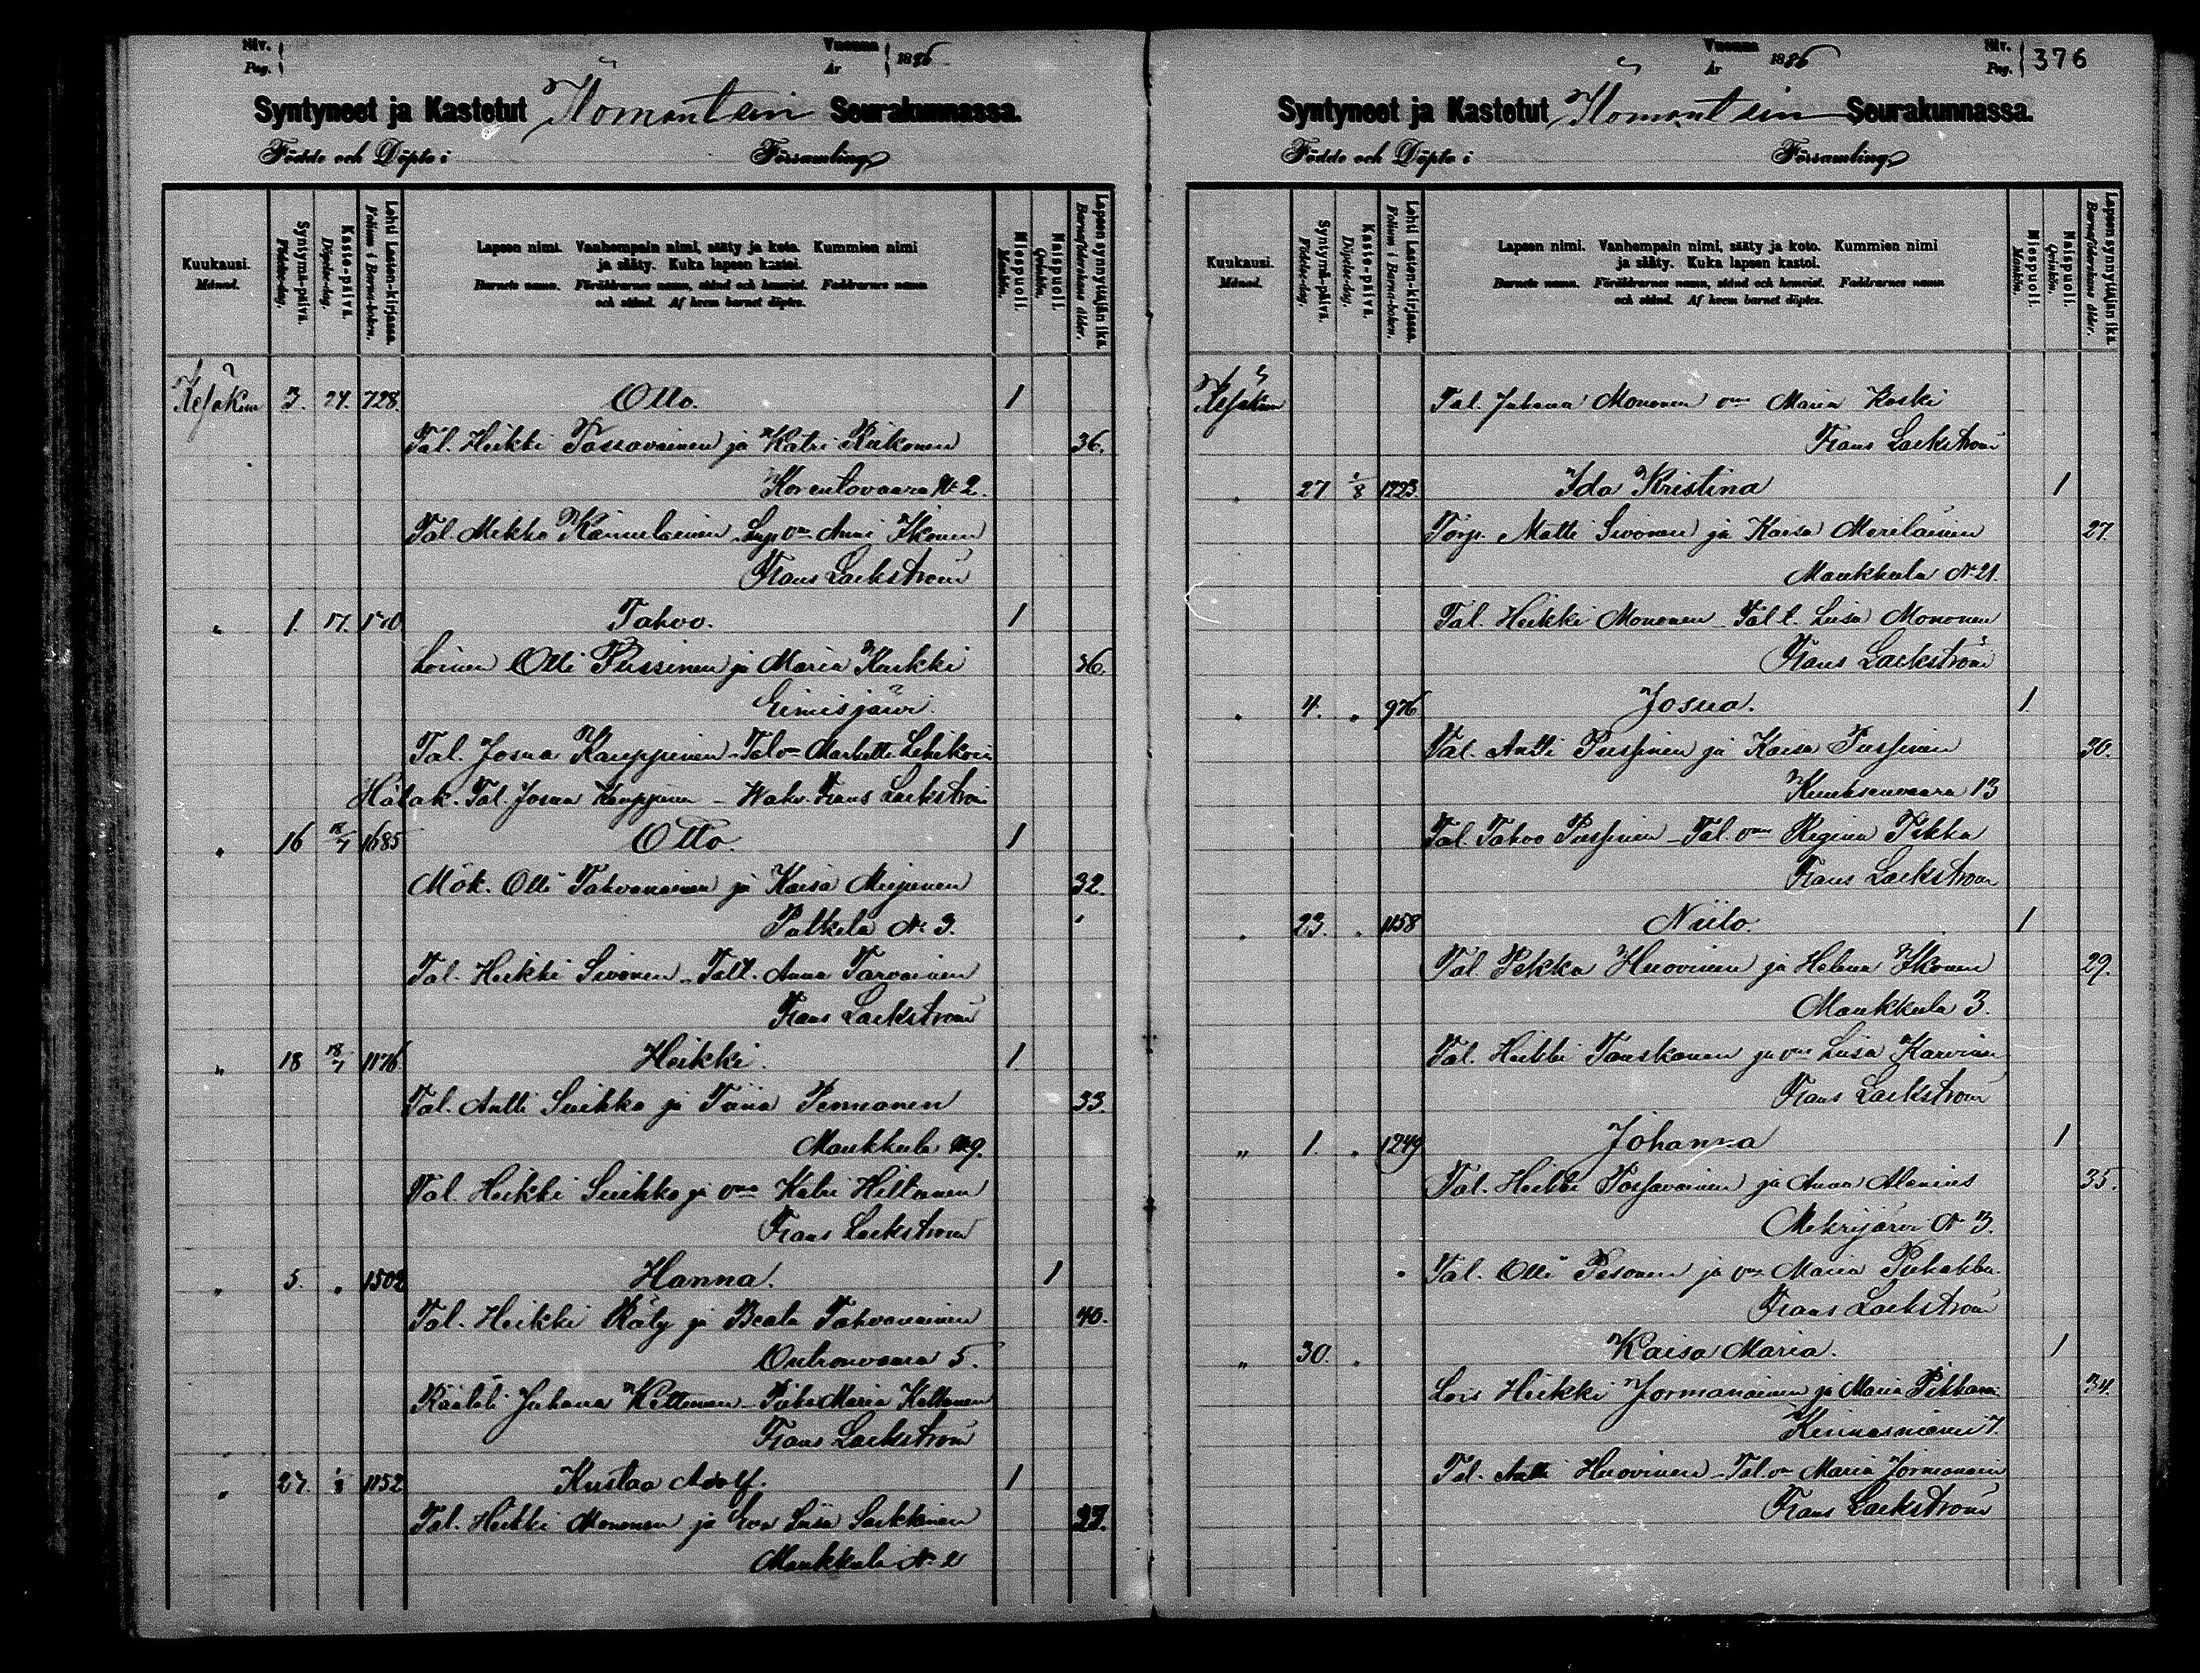 Siv. Vuonna
Pag. År 1886
Syntyneet ja Kastetut Ilomantsin Seurakunnassa.
Födde och Döpte i Församling
Kuukausi. Månad.
Syntymä-päivä. Födelse-dag.
Kaste-päivä. Döpelse-dag.
Lehti Lasten-kirjassa. Folium i Barna-boken.
Lapsen nimi. Vanhempain nimi, sääty ja koto. Kummien nimi
ja sääty. Kuka lapsen kastoi.
Barnets namn. Föräldrarnes namn, stånd och hemvist. Faddrarnes namn
och stånd. Af hvem barnet döptes.
Miespuoli. Mankön.
Naispuoli. Qvinkön.
Lapsen synnyttäjän ikä. Barnaföderskans ålder.
Kesäkuu 3. 27. 728. Otto. 1
Tal. Heikki Tossavainen ja Katri Riikonen 36.
Korentovaara № 2.
Tal. Mikko Kämäläinen Anni Ikonen
Frans Laekström
" 1. 17. Tahvo. 1
Loinen Olli Pussinen ja Maria Kuikki 36
Eimisjärvi.
Tal. Josua Kauppinen - Tal vmo Marketta Lehikoin
Hätäk. Tal. Josua Kauppinen - Wahv. Frans Laekström
" 16 18/7 1685 Otto. 1
Mök. Olli Tahvanainen ja Kaisa Mujunen 32.
Putkela № 3.
Tal. Heikki Sivonen - Tal t. Anna Tarvainen
Frans Laekström
" 18 18/7 1176 Heikki. 1
Tal. Antti Suihko ja Tiina Pennanen 33.
Maukkula № 9.
Tal. Heikki Suihko ja vmo Katri Hiltunen
Frans Laekström
" 5. " 1502 Hanna. 1
Tal. Heikki Räty ja Beata Tahvanainen 40.
Oukronvaara 5.
Räätäli Juhana Kettunen - Piika Maria Kettunen
Frans Laekström
" 27. 1/8 1152 Kustaa Adolf. 1
Tal. Heikki Mononen ja Eva Liisa Sarkkinen 27.
Maukkula № 2
Vuonna Siv.
År 1886 Pag. 376
Syntyneet ja Kastetut Ilomantsin Seurakunnassa.
Födde och Döpte i Församling
Kuukausi. Månad.
Syntymä-päivä. Födelse-dag.
Kaste-päivä. Döpelse-dag.
Lehti Lasten-kirjassa. Folium i Barna-boken.
Lapsen nimi. Vanhempain nimi, sääty ja koto. Kummien nimi
ja sääty. Kuka lapsen kastoi.
Barnets namn. Föräldrarnes namn, stånd och hemvist. Faddrarnes namn
och stånd. Af hvem barnet döptes.
Miespuoli. Mankön.
Naispuoli. Qvinkön.
Lapsen synnyttäjän ikä. Barnaföderskans ålder.
Kesäkuu Tal. Juhana Mononen vmo Maria Koski
Frans Laekström
" 27 1/8 1223. Ida Kristina 1
Torp. Matti Sivonen ja Kaisa Meriläinen 27.
Maukkula № 21.
Tal. Heikki Mononen - Tal t. Liisa Mononen
Frans Laekström
" 4. " 976 Josua. 1
Tal. Antti Pussinen ja Kaisa Pussinen 30.
Kuuksenvaara 13
Tal. Tahvo Pussinen - Tal. vmo Regina Pekka
Frans Laekström
" 23. " 1158 Niilo. 1
Tal Pekka Huovinen ja Helena Ikonen 29.
Maukkula 3.
Tal. Heikki Tanskanen ja vmo Liisa Karvinen
Frans Laekström
" 1. " 1249 Johanna 1
Tal. Heikki Tossavainen ja Anna Alenius 35.
Mekrijärvi № 3.
Tal. Olli Pesonen ja vmo Maria Puhakka
Frans Laekström
" 30. " Kaisa Maria. 1
Lois Heikki Jormanainen ja Maria Pikkarai 34.
Kuinasniemi 7.
Tal. Antti Huovinen - Tal. vmo Maria Jormanain
Frans Laekström